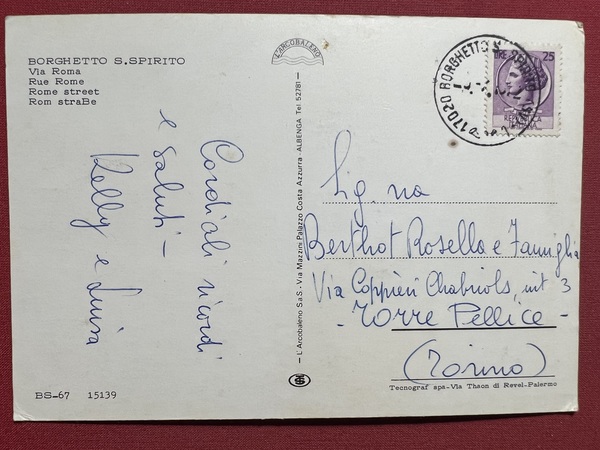 BORGHETTO S.SPIRITO
Via Roma
Rue Rome
Rome street
Rom straBe
L'ARCOBALENO
17020 BORGHETTO S. SPIRITO (SV)
LIRE 25
REPUBBLICA
ITALIANA
Cordiali ricordi
e saluti -
Kelly e Luisa
— L'Arcobaleno S.a.S. - Via Mazzini Palazzo Costa Azzurra - ALBENGA Tel 52781 —
Sig.na
Berthot Rosella e Famiglia
Via Coppieri Chabriols, int 3
- Torre Pellice -
(Torino)
BS-67 15139
Tecnograf spa-Via Thaon di Revel-Palermo